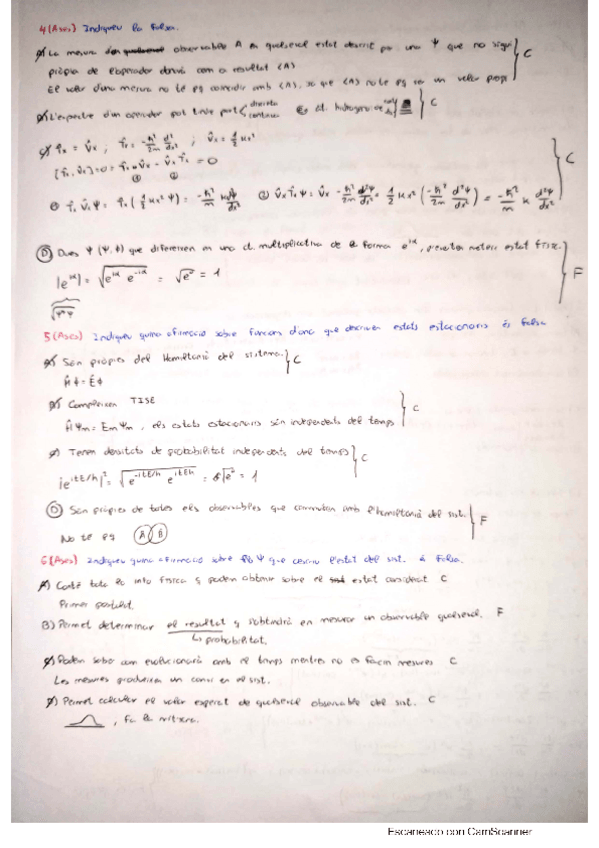 4 (Ases) Indiqueu la falsa.
A) La mesura observable A en qualsevol estat descrit per una Ψ que no sigui } C
pròpia de l'operador donarà com a resultat ⟨A⟩
El valor d'una mesura no té pq coincidir amb ⟨A⟩, ja que ⟨A⟩ no té pq ser un valor propi
B) L'espectre d'un operador pot tindre part < discreta contínua } C
C) T̂x = V̂x ; T̂x = -ħ²/2m d²/dx² ; V̂x = 1/2 kx²
[T̂x, V̂x] = 0 = T̂x V̂x - V̂x T̂x = 0 } C
① ②
① T̂x V̂x Ψ = T̂x (1/2 kx² Ψ) = -ħ²/m k d²Ψ/dx² ② V̂x T̂x Ψ = V̂x -ħ²/2m d²Ψ/dx² = 1/2 kx² (-ħ²/2m d²Ψ/dx²) = -ħ²/m k d²Ψ/dx²
D) Dues Ψ (Ψ, Φ) que difereixen en una ct. multiplicativa de la forma e^iα, presenten mateix estat físic. } F
|e^iα| = √(e^iα e^-iα) = √e⁰ = 1
√Ψ*Ψ
5 (Ases) Indiqueu quina afirmació sobre funcions d'ona que descriuen estats estacionaris és falsa
A) Són pròpies del Hamiltonià del sistema. } C
Ĥ Φ = ÊΦ
B) Compleixen TISE } C
ĤΨm = EmΨm, els estats estacionaris són independents del temps
C) Tenen densitats de probabilitat independents del temps } C
|e^itE/ħ|² = √(e^-itE/ħ e^itE/ħ) = √e⁰ = 1
D) Són pròpies de totes els observables que commuten amb l'hamiltonià del sist. } F
No té pq (A)(B)
6 (Ases) Indiqueu quina afirmació sobre Ψ que descriu l'estat del sist. és falsa.
A) Conté tota la info física q podem obtenir sobre el estat considerat C
Primer postulat.
B) Permet determinar el resultat q s'obtindrà en mesurar un observable qualsevol. F
↳ probabilitat.
C) Podem saber com evolucionarà amb el temps mentres no es facin mesures C
Les mesures produeixen un canvi en el sist.
D) Permet calcular el valor esperat de qualsevol observable del sist. C
, fa la mitjana.
Escaneado con CamScanner